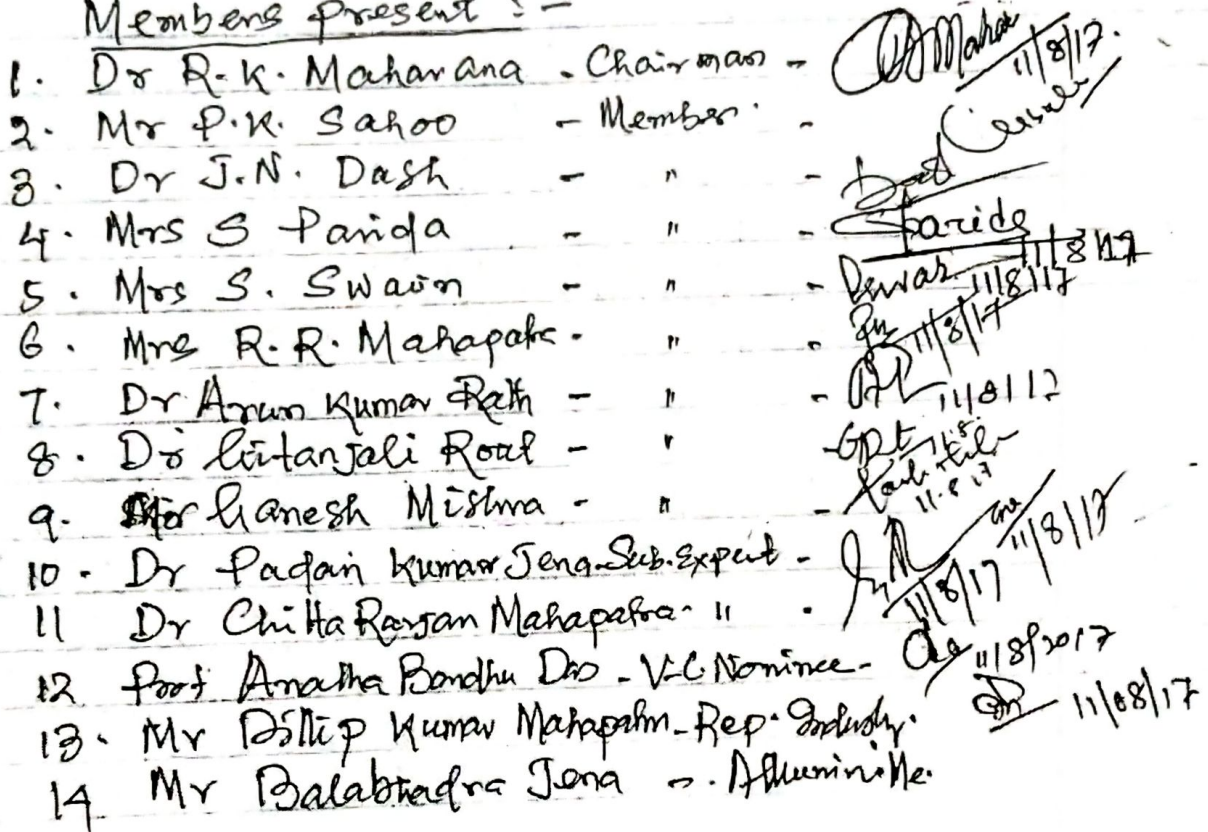 Members Present :-
1. Dr R.K. Maharana - Chairman - 11/8/17.
2. Mr P.K. Sahoo - Member. -
3. Dr J.N. Dash - " -
4. Mrs S Parida - " - SParida 11/8/17
5. Mrs S. Swain - " - 11/8/17
6. Mrs R.R. Mahapatra - " - 11/8/17
7. Dr Arun Kumar Rath - " - 11/8/17
8. Dr Gitanjali Rout - "
9. Mr Ganesh Mishra - " - 11.8.17
10. Dr Padan Kumar Jena - Sub. Expert - 11/8/17
11 Dr Chitta Ranjan Mahapatra - " 11/8/17
12 Prof Anatha Bandhu Das - V-C Nominee - 11/8/2017
13. Mr Dillip Kumar Mahapatra - Rep. Industry. 11/08/17
14. Mr Balabhadra Jena